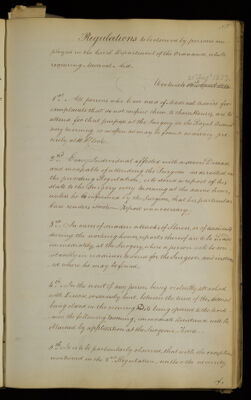 Regulations to be observed by persons em-
ployed in the Civil Department of the Ordnance, while
requiring Medical Aid.
Woolwich
1st. All persons who have need of Medical advice for
complaints that do not confine them to their homes, are to
attend for that purpose at the Surgery in the Royal Arsenal
every morning
2nd. Every Individual afflicted with Disease
and incapable of attending the Surgery as directed in
the preceding Regulation, is to send a report of his
state to the Surgery every morning at the same hour,
unless he is informed by the Surgeon, that his particular
case renders such a Report unnecessary.
3rd. In cases of sudden attacks of illness, or of accidents
during the working hours, reports thereof are to be made
immediately at the Surgery, where a person will be con-
stantly in readiness to search for the Surgeon, and instruct-
ed where he may be found.
4th. In the event of any person being violently attacked
with Disease, or suddenly hurt between the time of the Arsenal
being closed in the evening and its being opened to the work
men the following morning, immediate assistance will be
obtained by application at the Surgeon's
5th. It is to be particularly observed, that with the exception
mentioned in the 2nd Regulation, unless the necessity